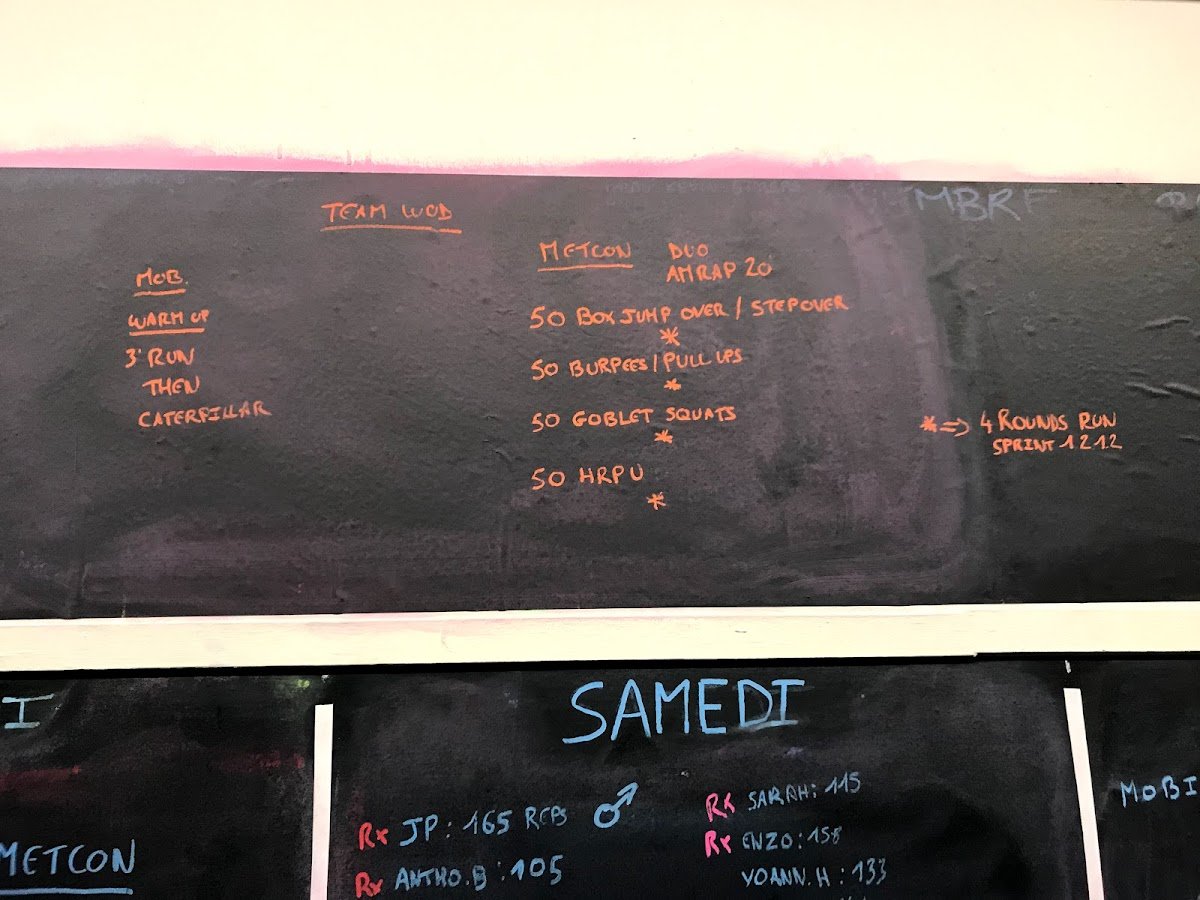 TEAM WOD
MOB.
WARM UP
3' RUN
THEN
CATERPILLAR
METCON DUO
AMRAP 20
50 BOX JUMP OVER / STEPOVER
*
50 BURPEES / PULL UPS
*
50 GOBLET SQUATS
*
50 HRPU
*
* => 4 ROUNDS RUN
SPRINT 1 2 1 2
MBRF
I
METCON
SAMEDI
Rx JP: 165 REPS ♂
Rx ANTHO.B: 105
Rx SARAH: 115
Rx ENZO: 158
YOANN.H: 133
MOBI